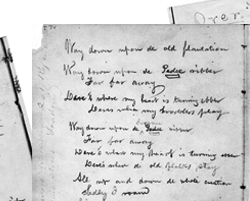 Over.
Way down upon de old plantation
Way down upon de Pedee ribber
Far far away
Dere's where my heart is turning ebber
Dere's wha my brodders play
Way down upon de Pedee ribber
Far far away
Dere's where my heart is turning ebber
Dere's where de old folks stay
All up and down de whole creation
Sadly I roam